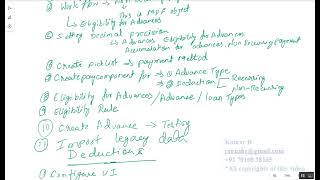 ② Workflow →
↳ This is MDF object
↳ Eligibility for Advances
③ Setting Decimal precision
↳ Advances Eligibility for Advances
Accumulation for advances Non Recurring Payment
④ Create Picklist → payment Method
⑤ Create paycomponent for → ① Advance Type
→ ② Deduction → Recurring
→ Non-recurring
⑧ Eligibility for Advances/Advance/loan Types
⑨ Eligibility Rule
⑩ Create Advance → Testing
⑪ Import legacy data
Deductions
① Configure UI
Kumar B
+91 79198 38349
*All copyrights of this video